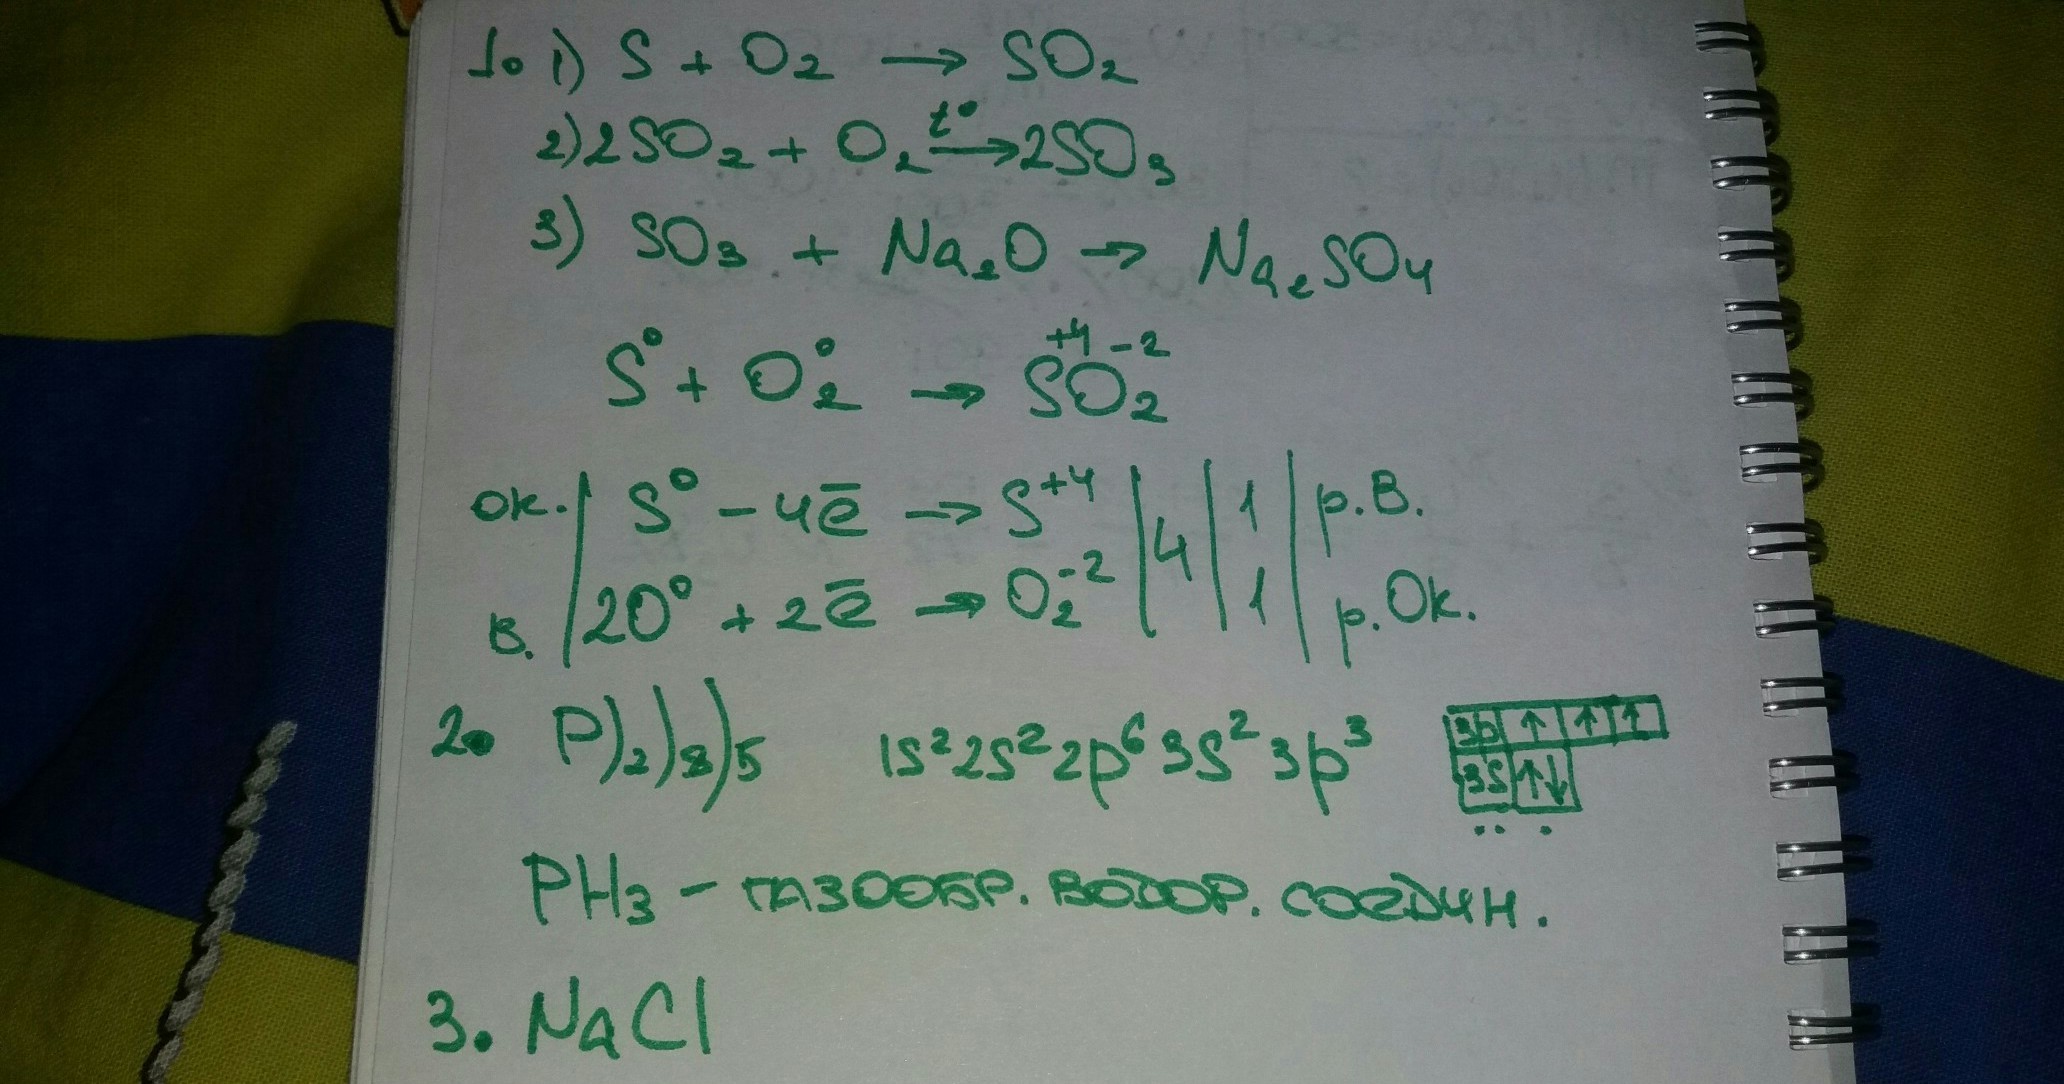 1. 1) S + O₂ → SO₂
2) 2SO₂ + O₂ t° → 2SO₃
3) SO₃ + Na₂O → Na₂SO₄
S⁰ + O₂⁰ → S⁺⁴O₂⁻²
ок. | S⁰ - 4ē → S⁺⁴ | 4 | 1 | р.в.
в. | 2O⁰ + 2ē → O₂⁻² | | 1 | р.Ок.
2. P)₂)₈)₅ 1s²2s²2p⁶3s²3p³ 3p ↑ ↑ ↑
3s ↑↓
PH₃ - ГАЗООБР. ВОДОР. СОЕДИН.
3. NaCl